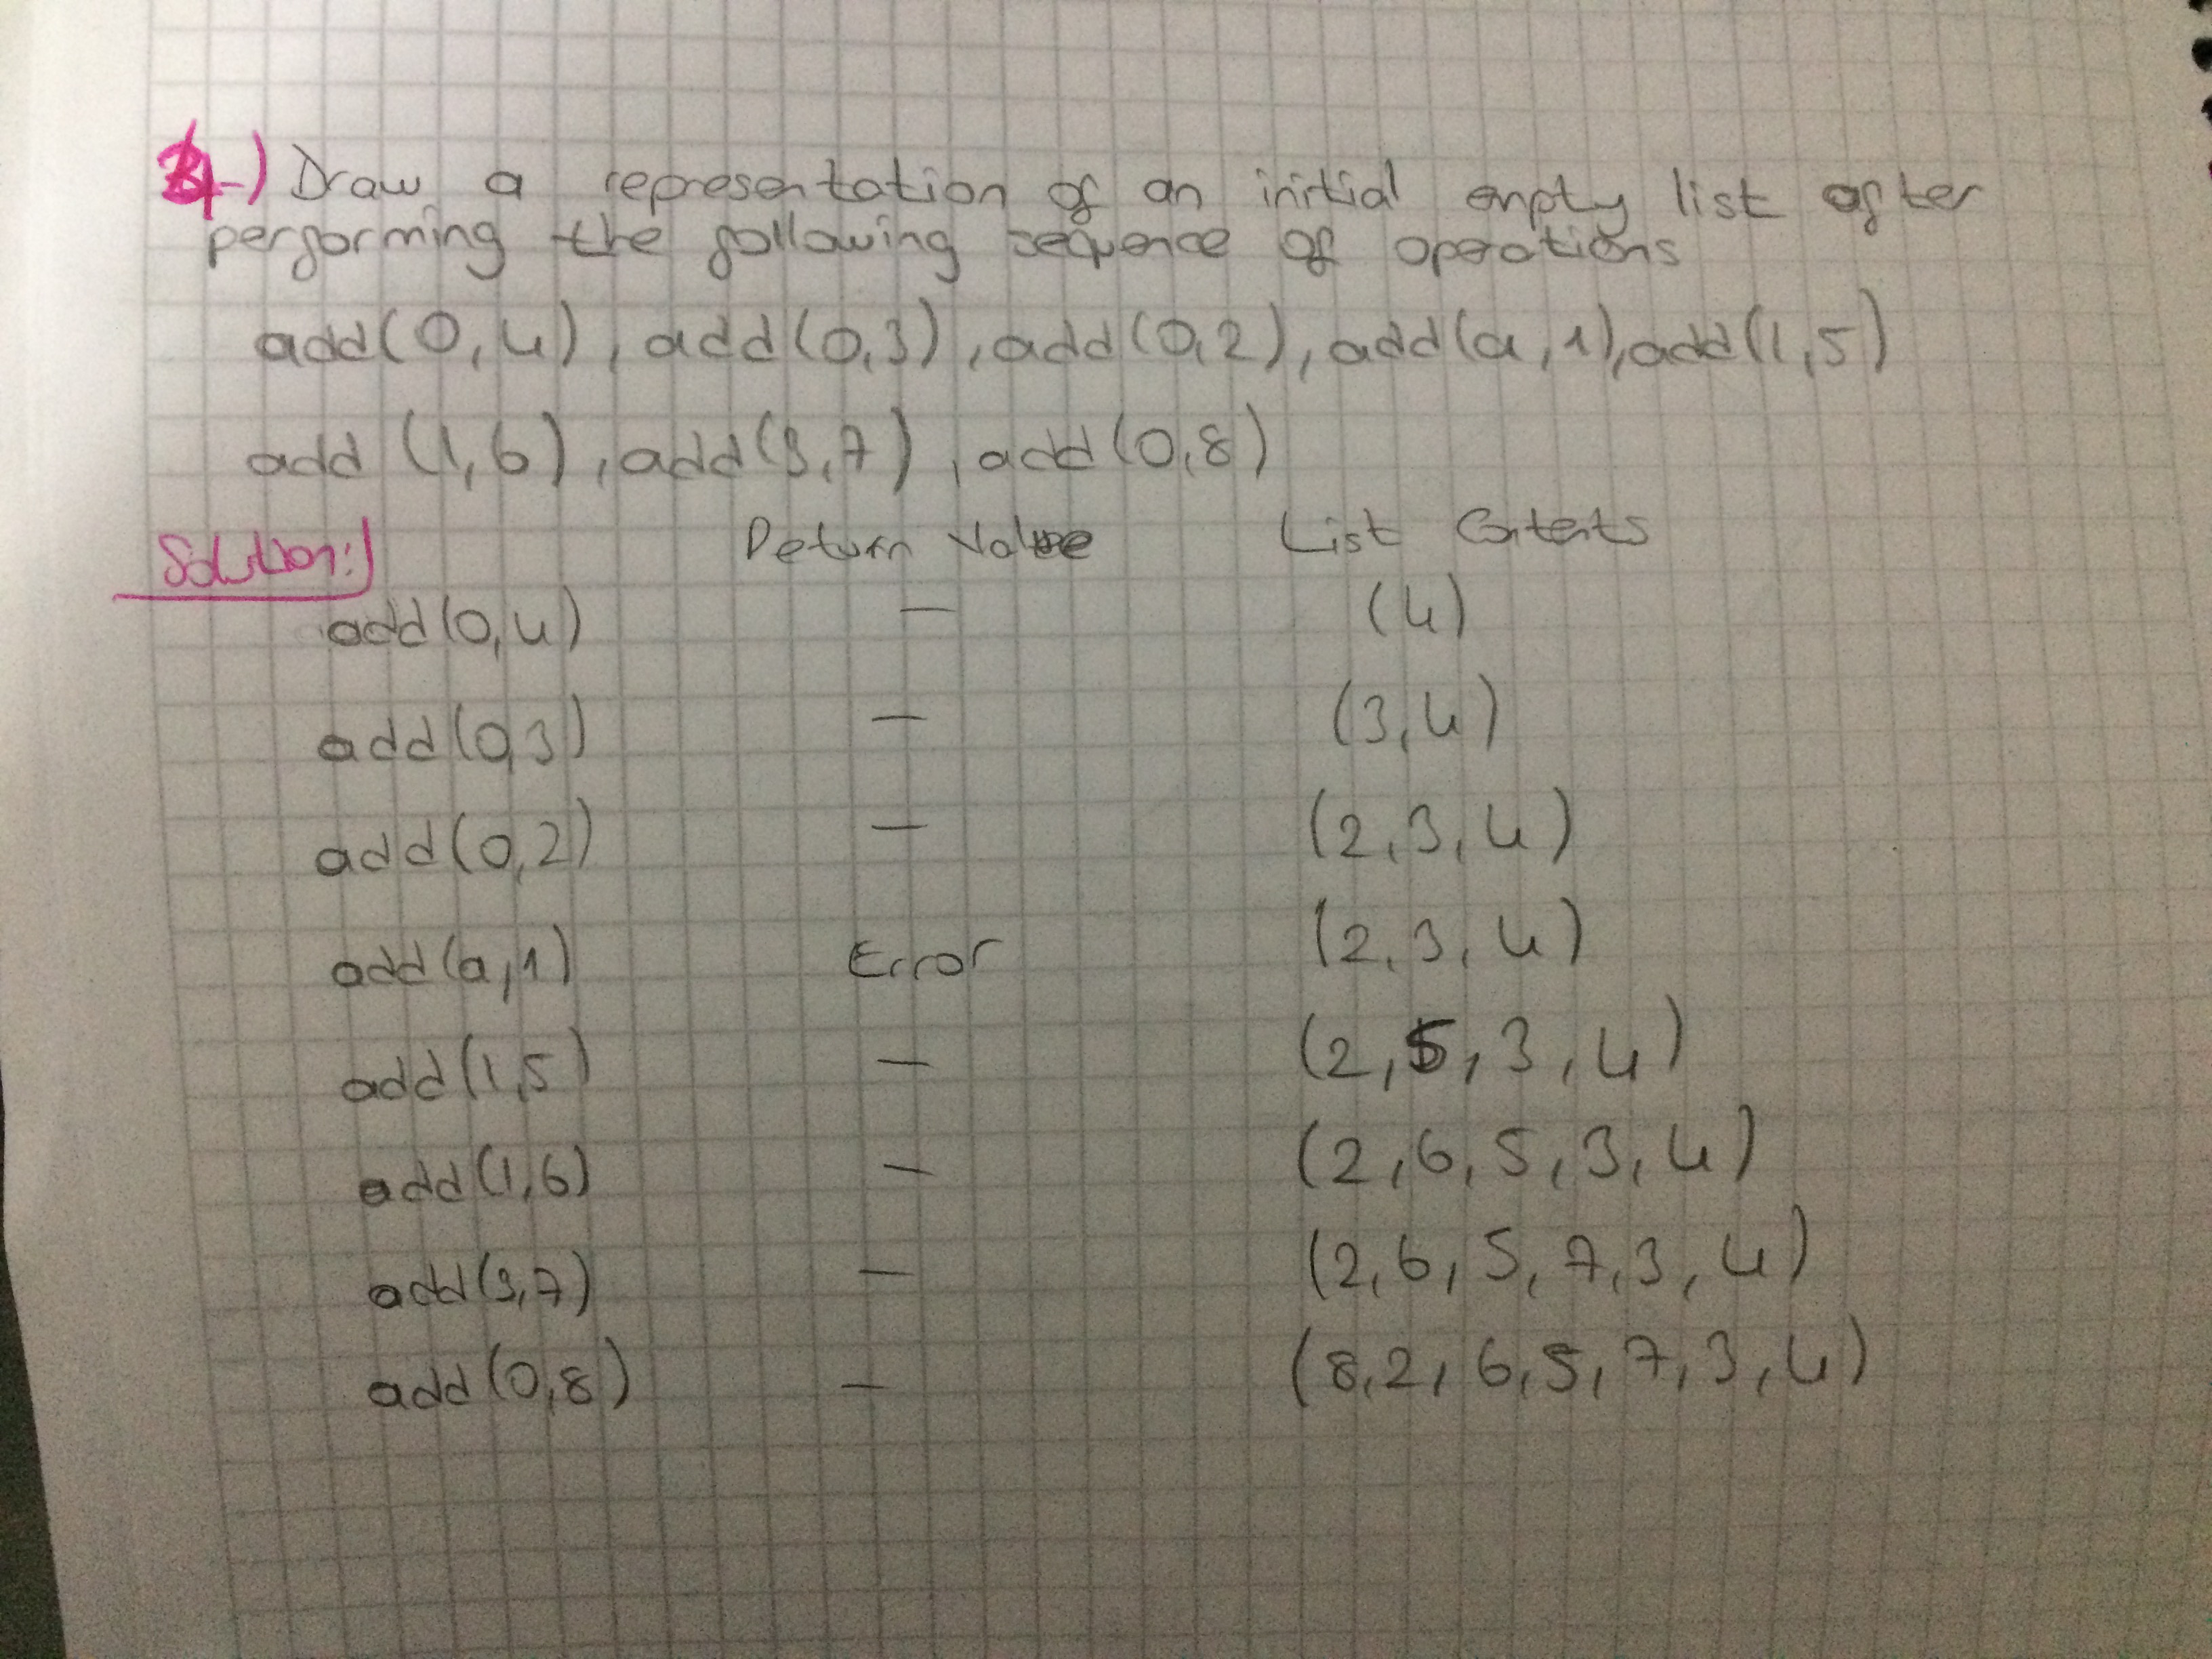 4-) Draw a representation of an initial empty list after
performing the following sequence of operations
add(0,4), add(0,3), add(0,2), add(a,1), add(1,5)
add (1,6), add(3,7), add(0,8)
Solution:) Return Value List Contents
add(0,4) — (4)
add(0,3) — (3,4)
add(0,2) — (2,3,4)
add(a,1) Error (2,3,4)
add(1,5) — (2,5,3,4)
add(1,6) — (2,6,5,3,4)
add(3,7) — (2,6,5,7,3,4)
add(0,8) — (8,2,6,5,7,3,4)